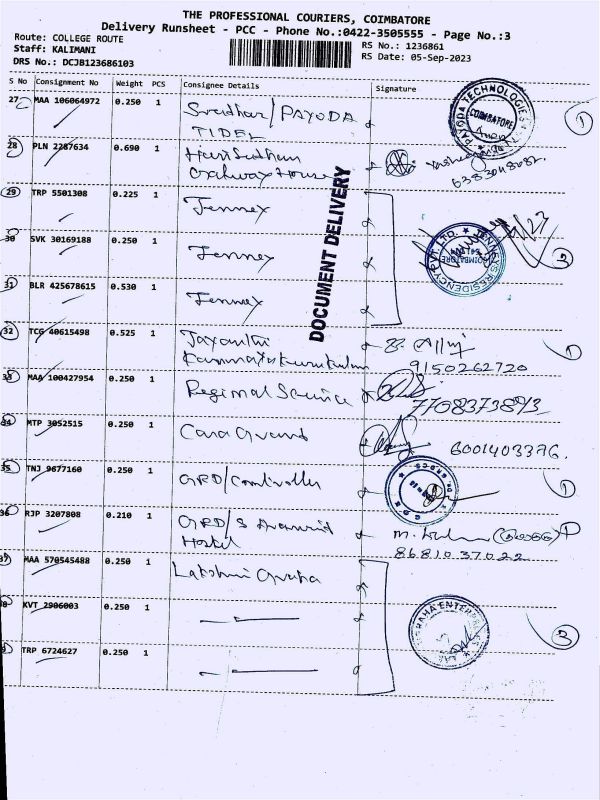 THE PROFESSIONAL COURIERS, COIMBATORE
Delivery Runsheet - PCC - Phone No.:0422-3505555 - Page No.:3
Route: COLLEGE ROUTE
RS No.: 1236861
Staff: KALIMANI
RS Date: 05-Sep-2023
DRS No.: DCJB123686103
S No Consignment No Weight PCS Consignee Details Signature
27 MAA 106064972 0.250 1 Sridhar/PAYODA
TIDEL
PAYODA TECHNOLOGIES
COIMBATORE
1
28 PLN 2287634 0.690 1 Hari Sudhan
6383048682
DOCUMENT DELIVERY
29 TRP 5501308 0.225 1 Jenney
30 SVK 30169188 0.250 1 Jenney
JENNEYS RESIDENCY PVT. LTD.
COIMBATORE
31 BLR 425678615 0.530 1 Jenney
32 TCG 40615498 0.525 1 Jayanthi
9150262720
1
33 MAA 100427954 0.250 1 Regional Science
7708373893
34 MTP 3052515 0.250 1 Cara Grand
6001403376.
35 TNJ 9677160 0.250 1 GRD/Controller
1
36 RJP 3207808 0.210 1 GRD/S
Hostel
8681037022
37 MAA 570545488 0.250 1 Lakshmi Graha
38 KVT 2906003 0.250 1
3
39 TRP 6724627 0.250 1